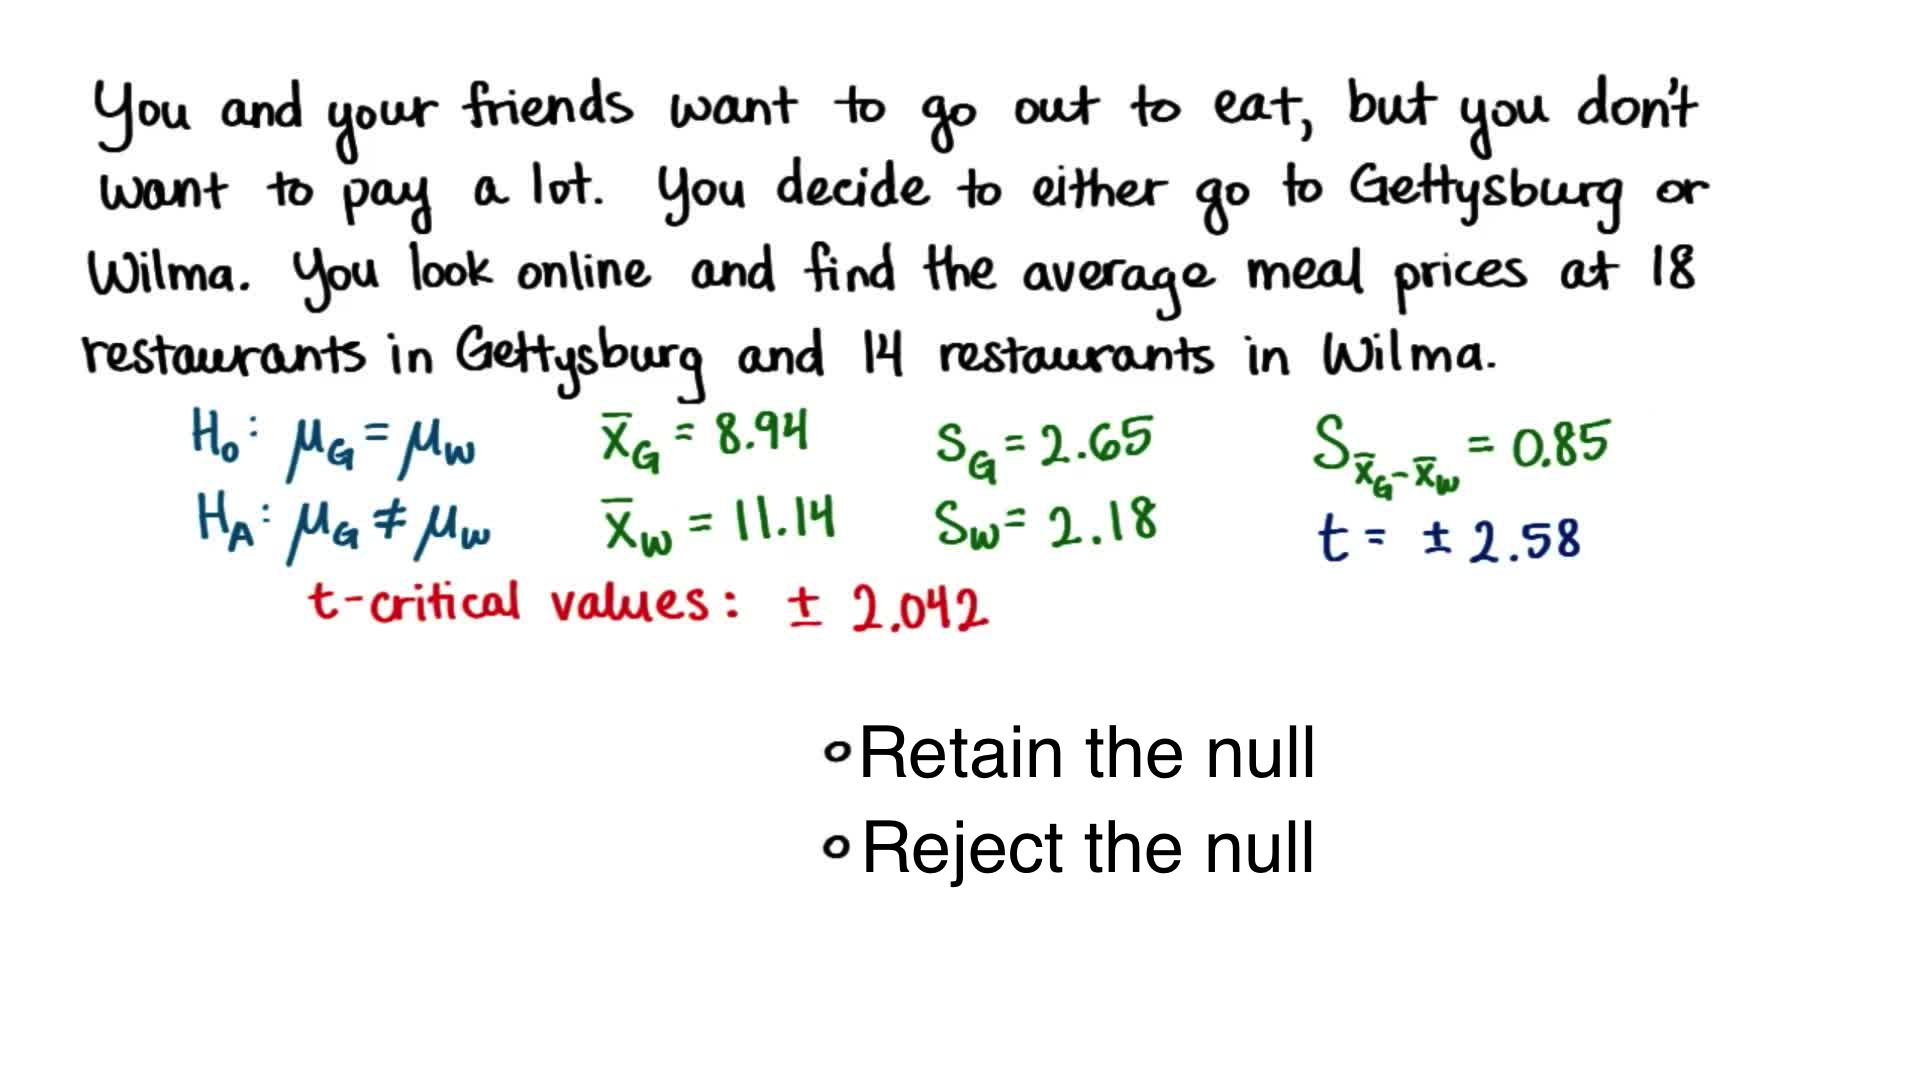 You and your friends want to go out to eat, but you don't
want to pay a lot. You decide to either go to Gettysburg or
Wilma. You look online and find the average meal prices at 18
restaurants in Gettysburg and 14 restaurants in Wilma.
H₀: μ_G = μ_W x̄_G = 8.94 S_G = 2.65 S_x̄_G-x̄_W = 0.85
H_A: μ_G ≠ μ_W x̄_W = 11.14 S_W = 2.18 t = ± 2.58
t-critical values: ± 2.042
Retain the null
Reject the null